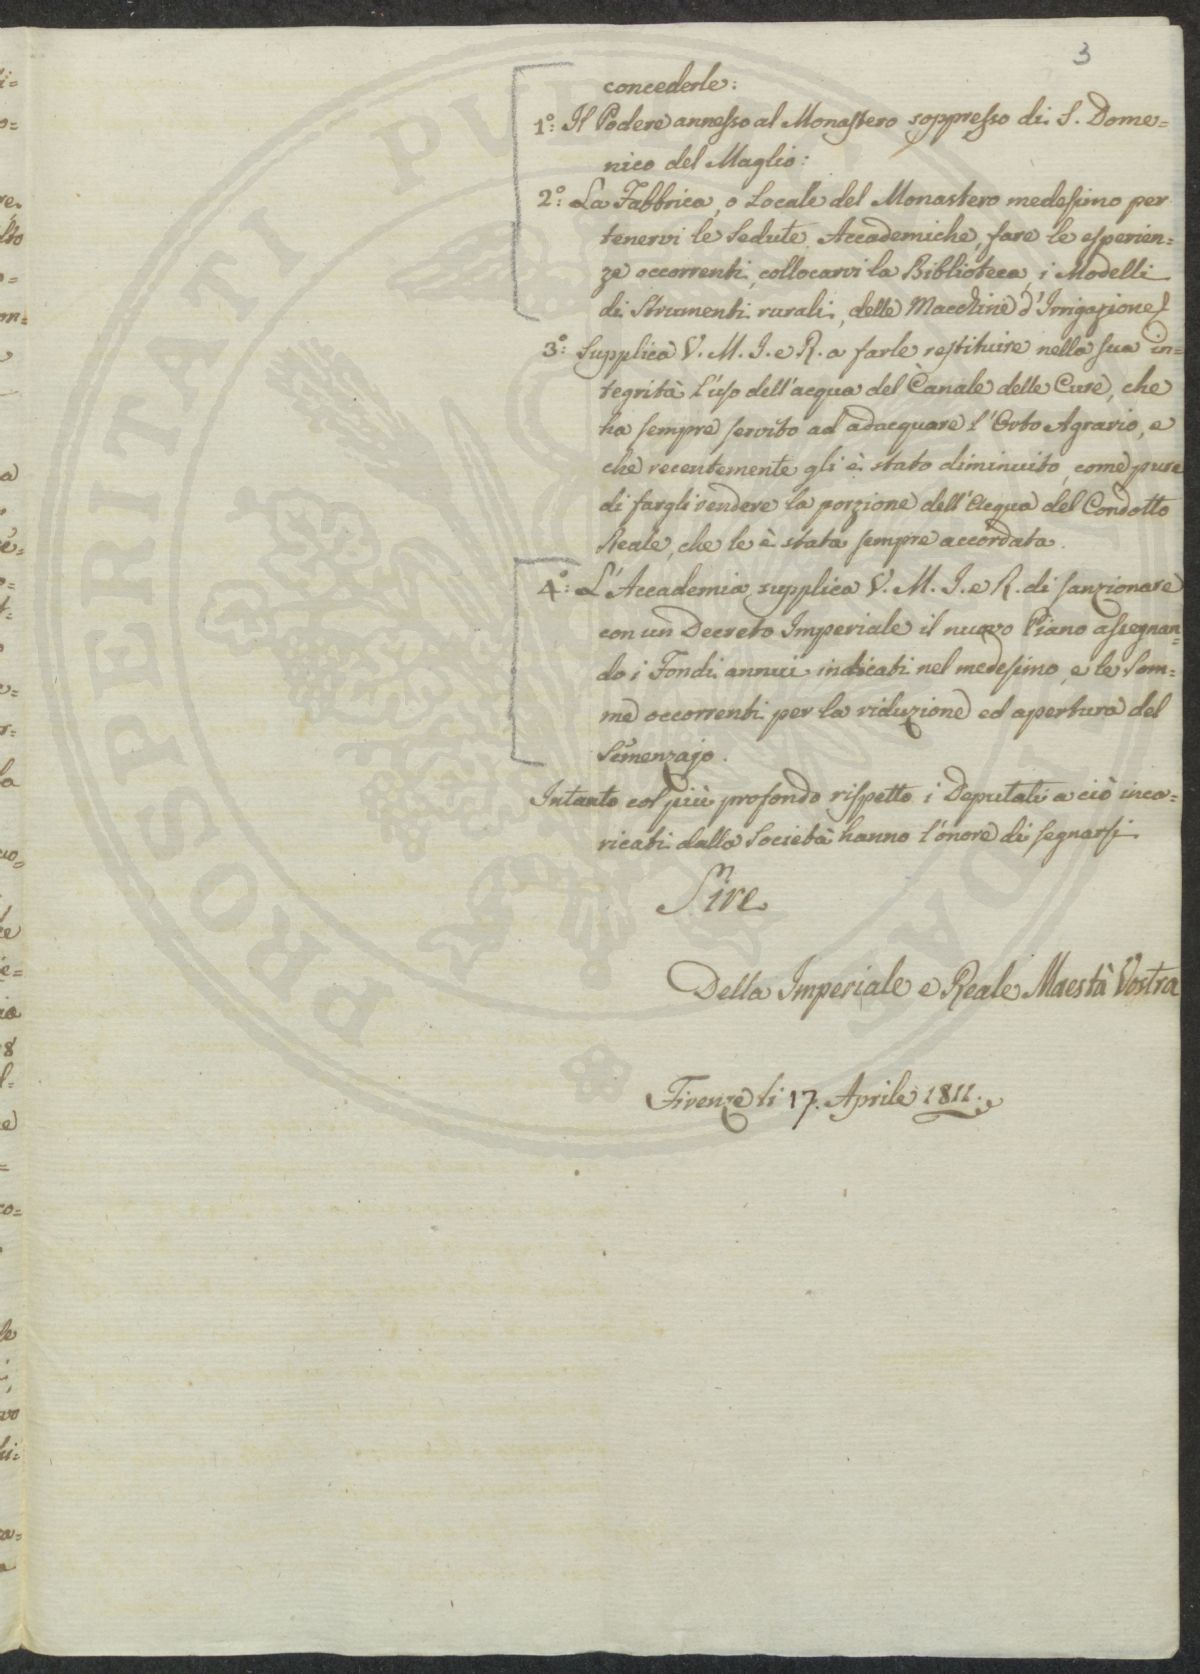 3
concederle:
1°: Il Podere annesso al Monastero soppresso di S. Dome=
nico del Maglio:
2°: La Fabbrica, o Locale del Monastero medesimo per
tenervi le Sedute Accademiche, fare le esperien=
ze occorrenti, collocarvi la Biblioteca, i Modelli
di Strumenti rurali, delle Macchine d'Irrigazione
3°: Supplica V. M. I. e R. a farle restituire nella sua in=
tegrità l'uso dell'acqua del Canale delle Cure, che
ha sempre servito ad adacquare l'Orto Agrario, e
che recentemente gli è stato diminuito, come pure
di fargli rendere la porzione dell'Acqua del Condotto
Reale, che le è stata sempre accordata.
4°: L'Accademia supplica V. M. I. e R. di sanzionare
con un Decreto Imperiale il nuovo Piano assegnan=
do i Fondi annui indicati nel medesimo, e le Som=
me occorrenti per la riduzione ed apertura del
Semenzajo.
Intanto col più profondo rispetto i Deputati a ciò inca=
ricati dalla Società hanno l'onore di segnarsi
Sire
Della Imperiale e Reale Maestà Vostra
Firenze li 17. Aprile 1811.
PROSPERITATI